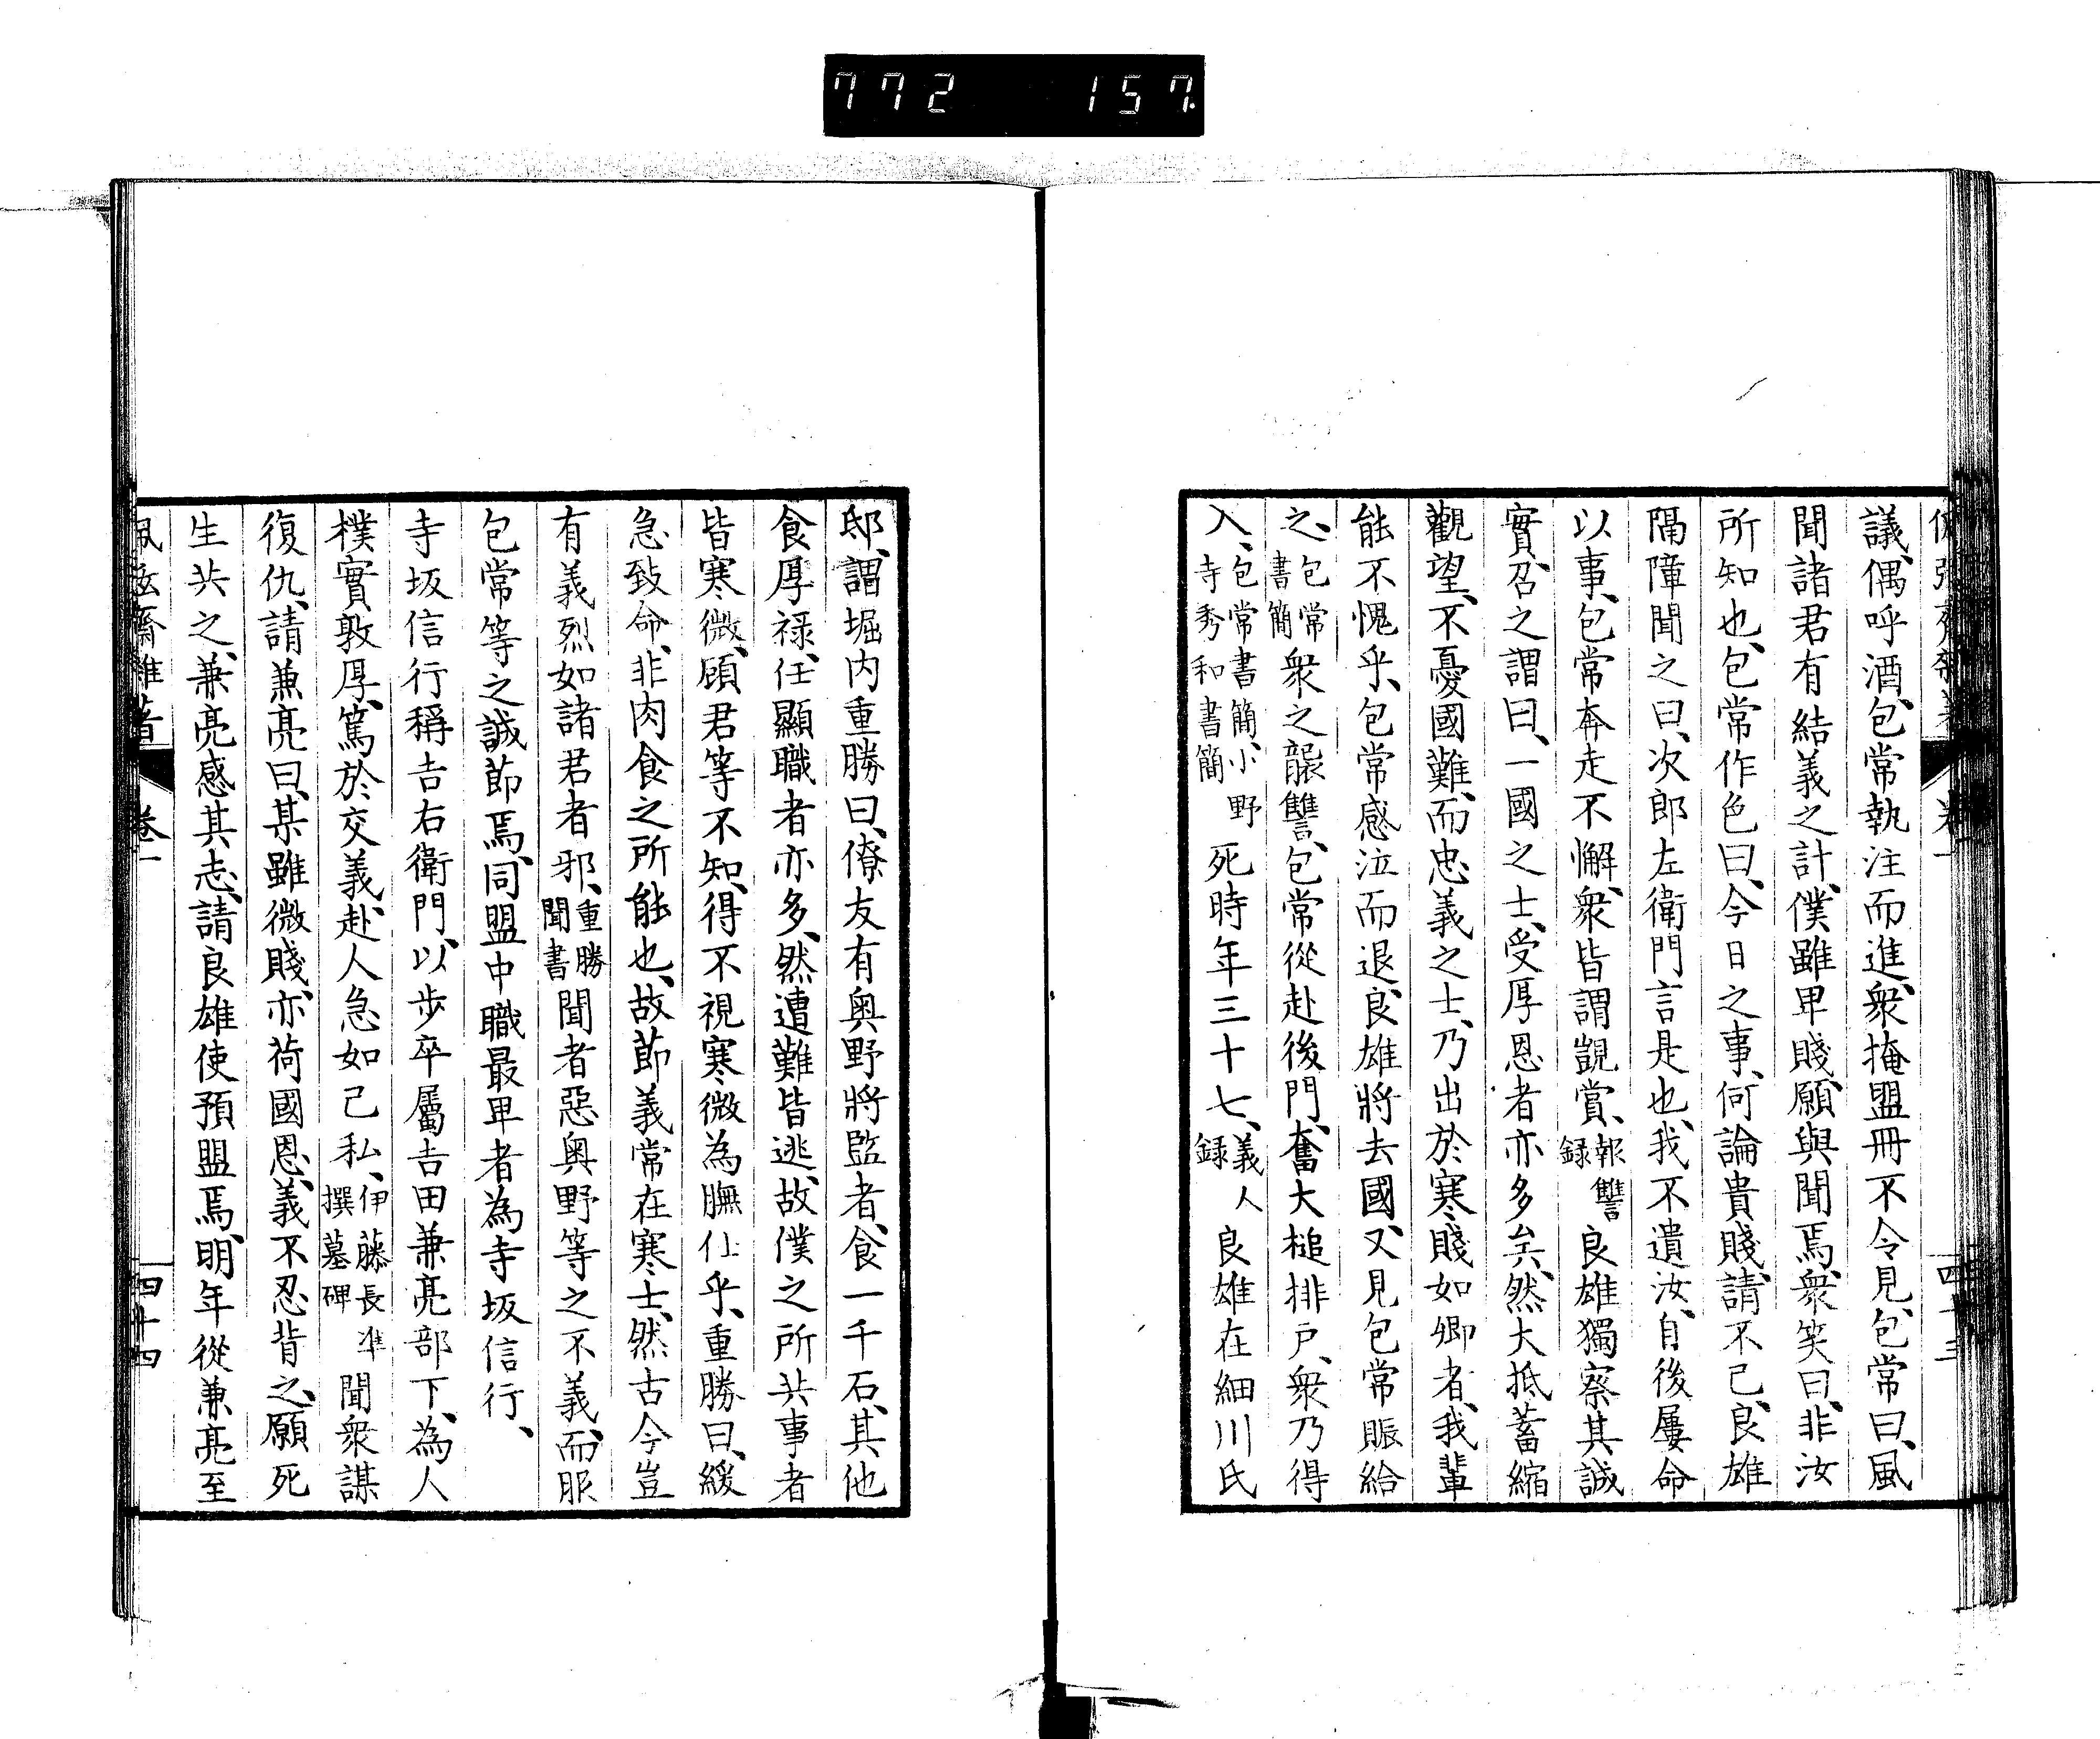 772 157
議、偶呼酒、包常執注而進、衆掩盟冊不令見、包常曰、風
聞諸君有結義之計、僕雖卑賤、願與聞焉、衆笑曰、非汝
所知也、包常作色曰、今日之事、何論貴賤、請不已、良雄
隔障聞之曰、次郎左衛門言是也、我不遺汝、自後屢命
以事、包常奔走不懈、衆皆謂覬賞、報讐録良雄獨察其誠
實、召之謂曰、一國之士、受厚恩者亦多矣、然大抵蓄縮
觀望、不憂國難、而忠義之士、乃出於寒賤如卿者、我輩
能不愧乎、包常感泣而退、良雄將去國、又見包常賑給
之、包常書簡衆之襲讐、包常從赴後門、奮大槌排戸、衆乃得
入、包常書簡、小野寺秀和書簡死時年三十七、義人録良雄在細川氏
邸、謂堀内重勝曰、僚友有奧野將監者、食一千石、其他
食厚禄、任顯職者亦多、然遭難皆逃、故僕之所共事者
皆寒微、頋君等不知、得不視寒微為膴仕乎、重勝曰、緩
急致命、非肉食之所能也、故節義常在寒士、然古今豈
有義烈如諸君者邪、重勝聞書聞者惡奧野等之不義、而服
包常等之誠節焉、同盟中職最卑者為寺坂信行、
寺坂信行稱吉右衛門、以步卒屬吉田兼亮部下、為人
樸實敦厚、篤於交義、赴人急如己私、伊藤長準撰墓碑聞衆謀
復仇、請兼亮曰、某雖微賤、亦荷國恩、義不忍背之、願死
生共之、兼亮感其志、請良雄使預盟焉、明年從兼亮至
齋雜著 卷一 四十四